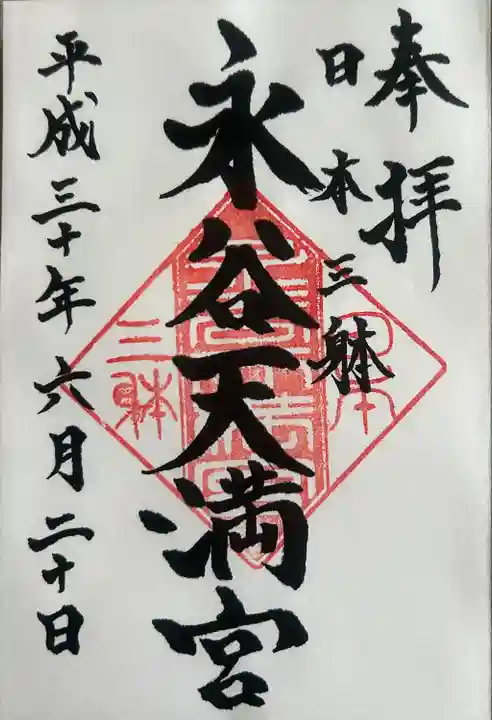 奉拝
日本三躰
永谷天満宮
平成三十年六月二十日
日本
三躰